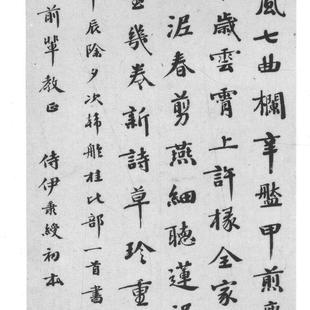 風七曲欄辛盤甲煎
歲雲霄上許様全家
泥春剪燕細聽蓮
幾卷新詩草珍重
辰除夕次韩舲桂比部一首書
前輩教正 侍伊秉綬初本